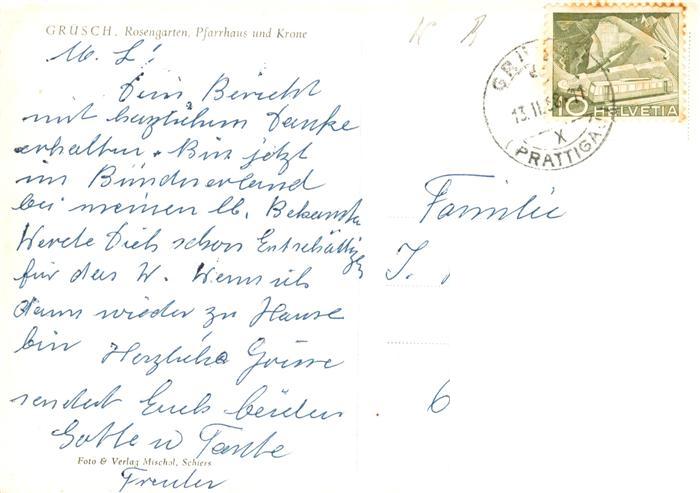 GRÜSCH. Rosengarten, Pfarrhaus und Krone
M. L!
Dein Bericht
mit herzlichem Danke
erhalten. Bin jetzt
im Bündnerland
bei meinen lb. Bekannten
Werde Dich schon Entschädigen
für das W. Wenn ich
dann wieder zu Hause
bin Herzliche Grüsse
sendet Euch beiden
Gotte u Tante
Foto & Verlag Mischol, Schiers
HELVETIA
10
13.II.53
X
(PRÄTTIGAU)
Familie
J.
6